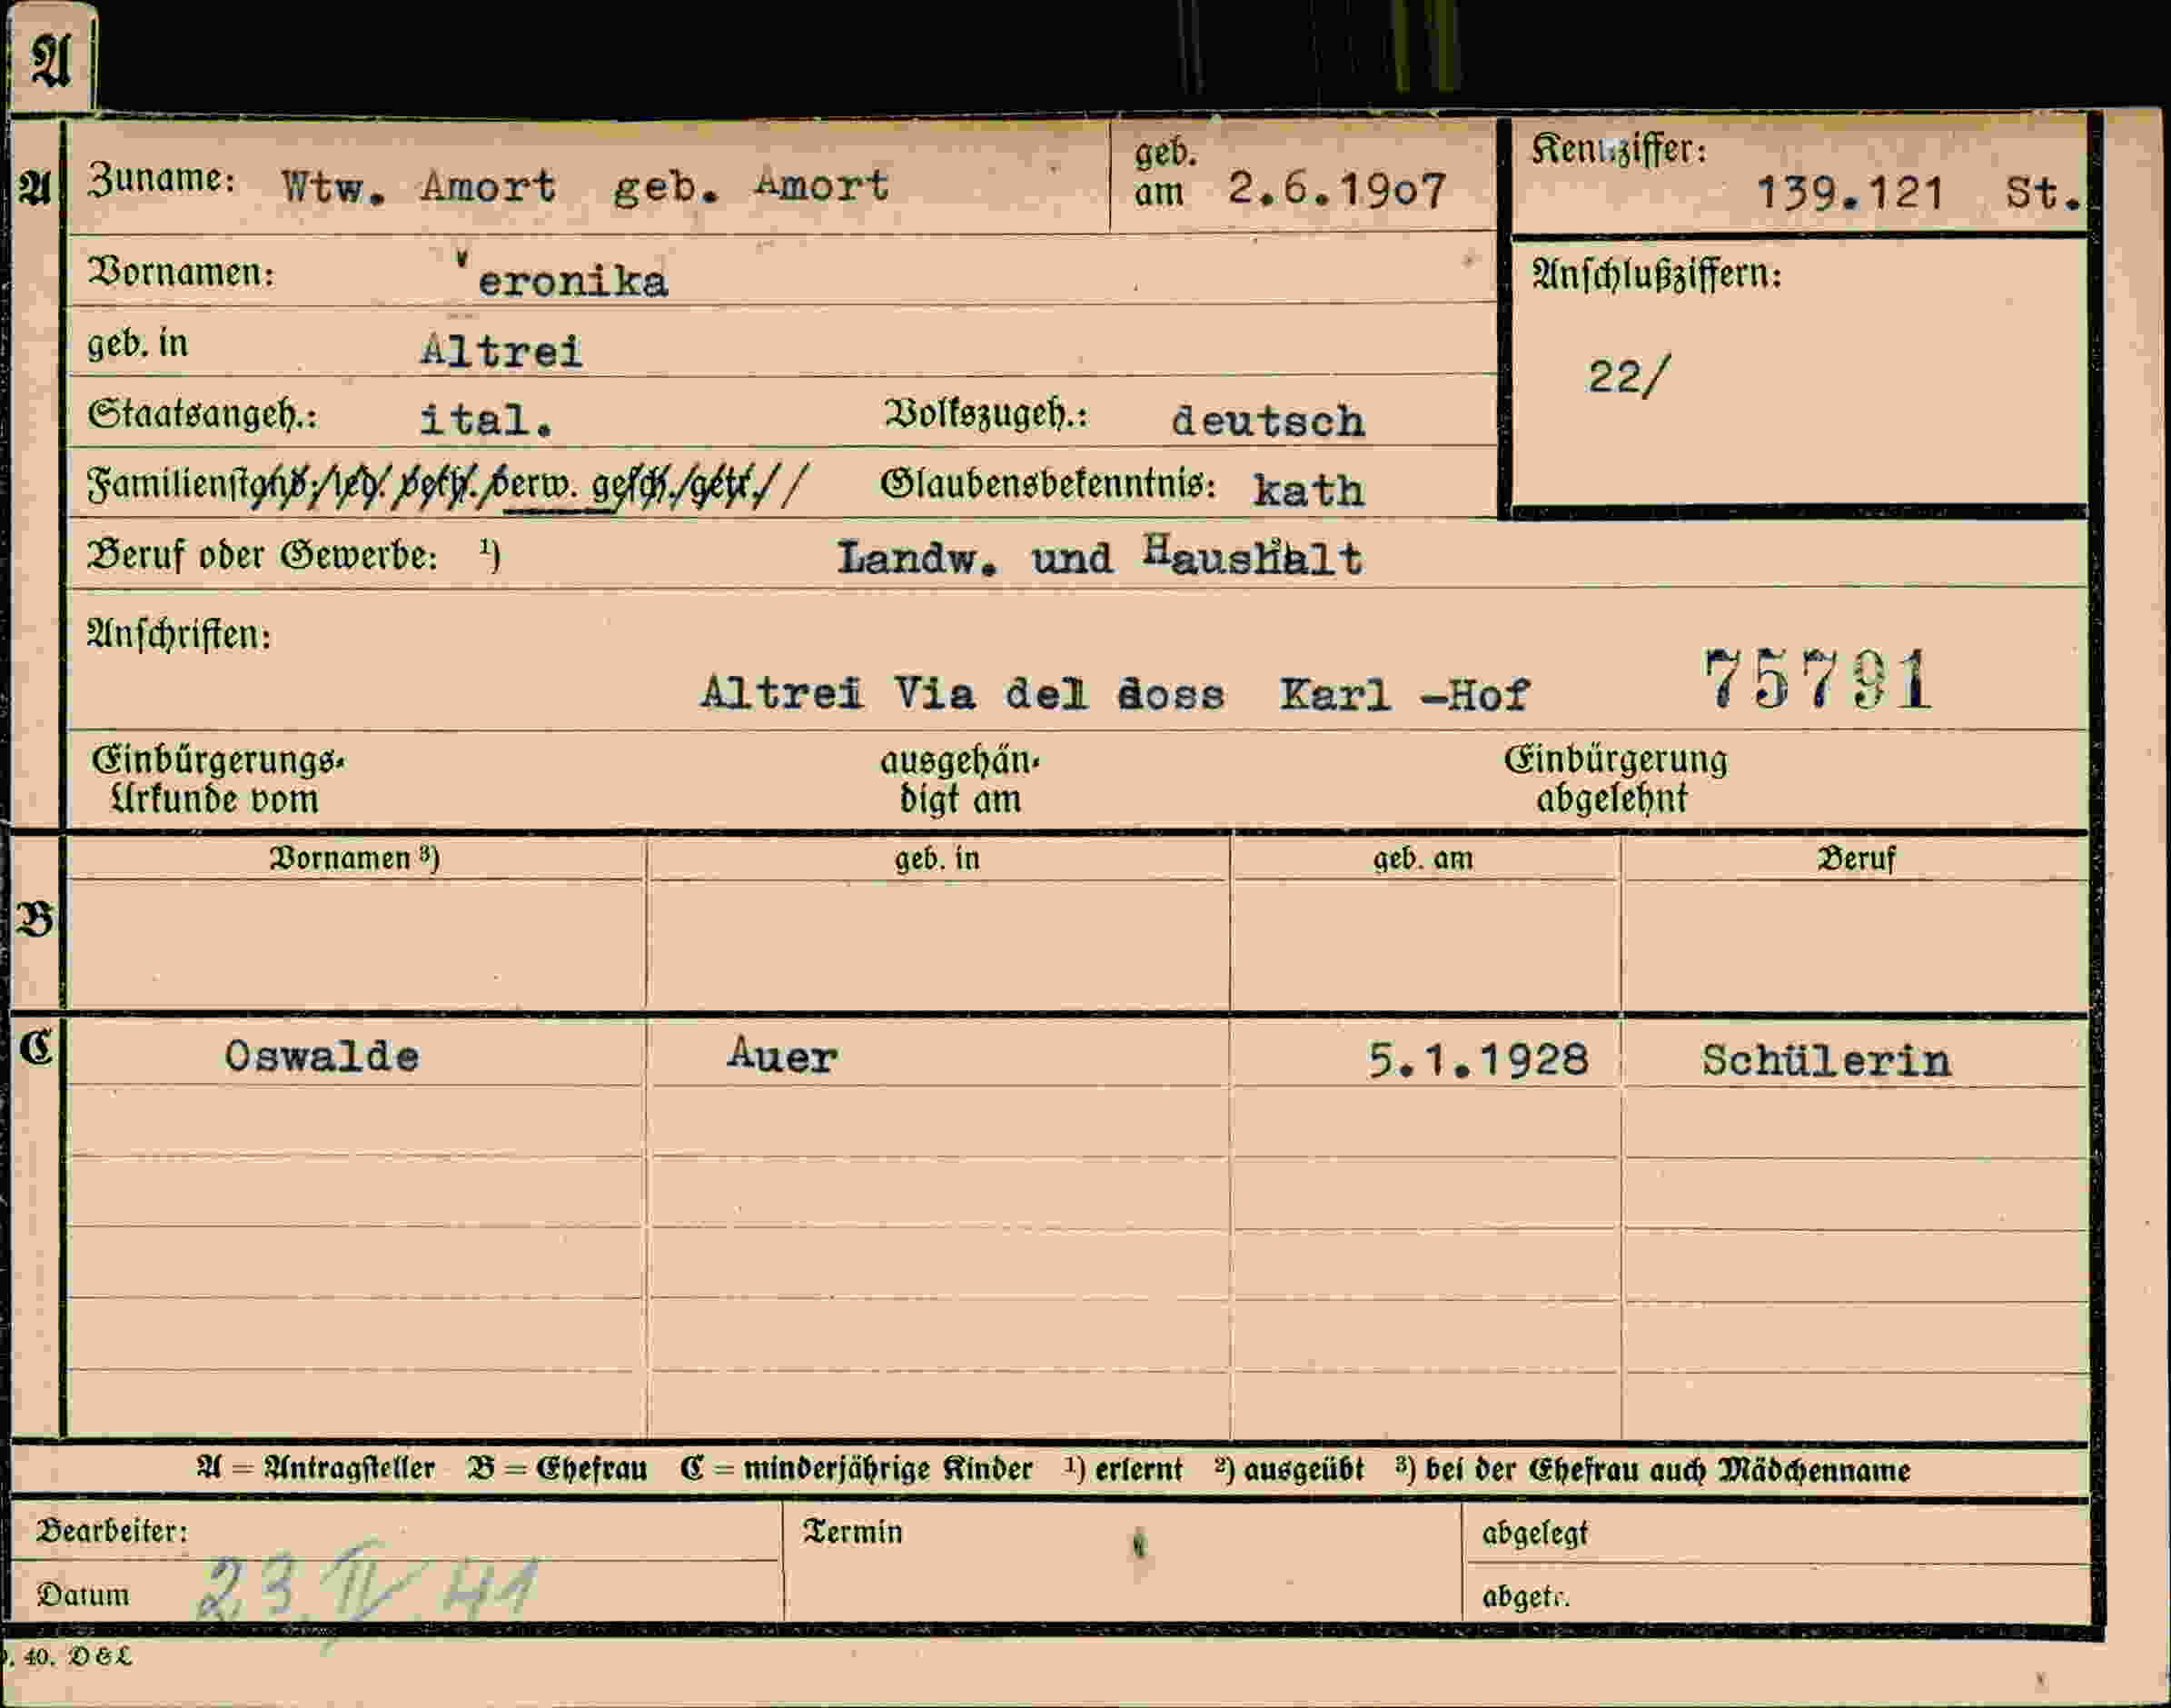 A
A Zuname: Wtw. Amort geb. Amort geb. am 2.6.1907 Kennziffer: 139.121 St.
Vornamen: Veronika Anschlußziffern:
geb. in Altrei 22/
Staatsangeh.: ital. Volkszugeh.: deutsch
Familienstand: led. verh. verw. gesch. getr. Glaubensbekenntnis: kath
Beruf oder Gewerbe: ¹) Landw. und Haushalt
Anschriften:
Altrei Via del doss Karl -Hof 75791
Einbürgerungs-Urkunde vom ausgehän-digt am Einbürgerung abgelehnt
Vornamen ³) geb. in geb. am Beruf
B
C Oswalde Auer 5.1.1928 Schülerin
A = Antragsteller B = Ehefrau C = minderjährige Kinder ¹) erlernt ²) ausgeübt ³) bei der Ehefrau auch Mädchenname
Bearbeiter: Termin abgelegt
Datum 23. IV. 41 abgetr.
40. D & L